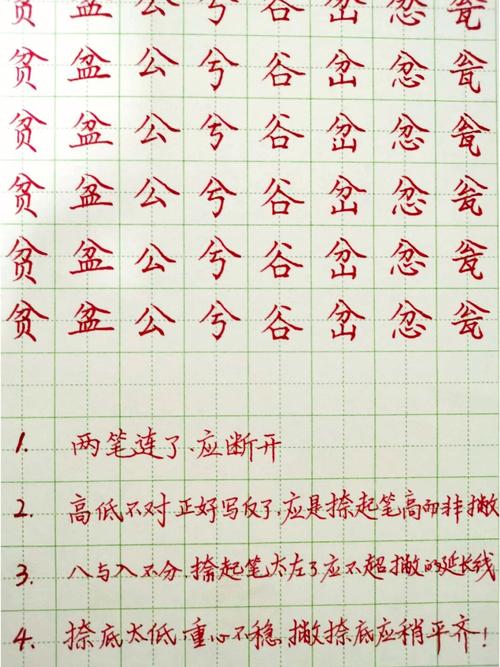 贫 盆 公 兮 谷 岔 忿 瓮
贫 盆 公 兮 谷 岔 忿 瓮
贫 盆 公 兮 谷 岔 忿 瓮
贫 盆 公 兮 谷 岔 忿 瓮
贫 盆 公 兮 谷 岔 忿 瓮
贫 盆 公 兮 谷 岔 忿 瓮
1. 两笔连了、应断开
2. 高低不对正好写反了,应是捺起笔高而非撇
3. 八与入不分,捺起笔太左了应不超撇的延长线
4. 捺底太低,重心不稳,撇捺底应稍平齐!